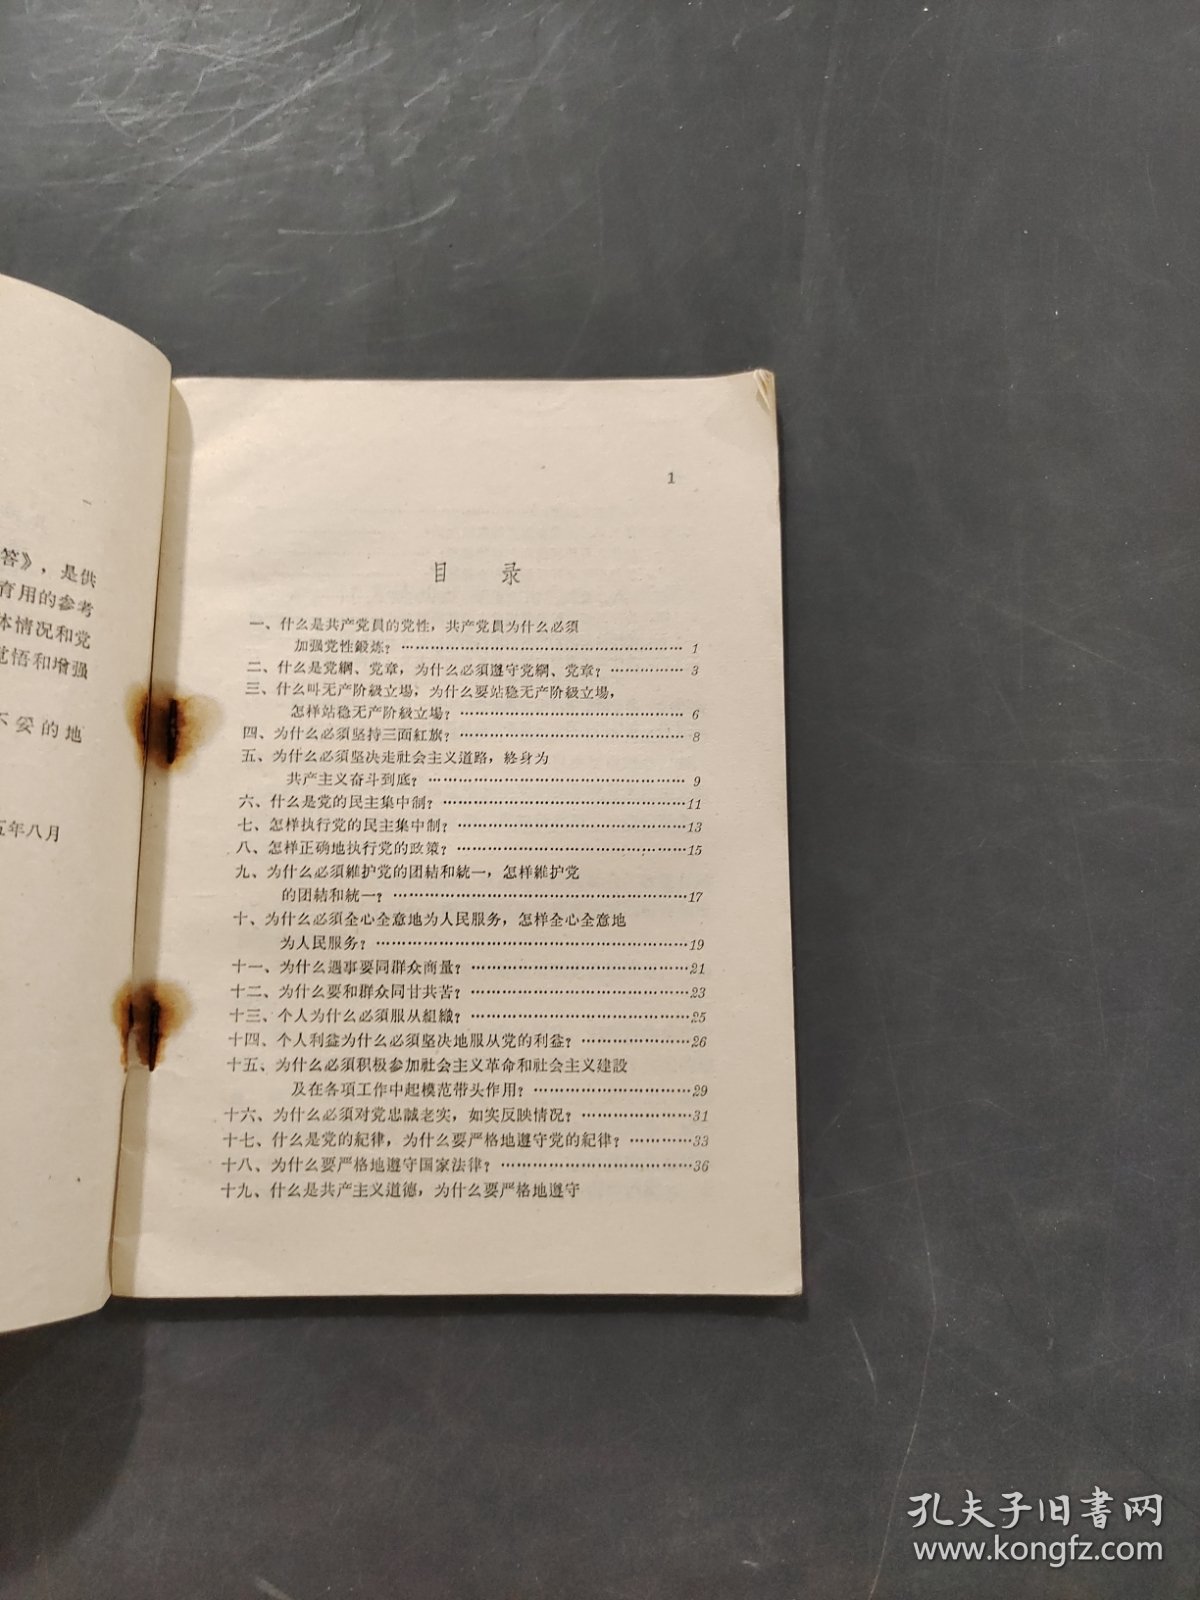 答》，是供
育用的参考
体情况和党
觉悟和增强
不妥的地
五年八月
1
目 录
一、什么是共产党員的党性，共产党員为什么必須
加强党性鍛炼？ 1
二、什么是党綱、党章，为什么必須遵守党綱、党章？ 3
三、什么叫无产阶級立場，为什么要站稳无产阶級立場，
怎样站稳无产阶級立場？ 6
四、为什么必須坚持三面紅旗？ 8
五、为什么必須坚决走社会主义道路，終身为
共产主义奋斗到底？ 9
六、什么是党的民主集中制？ 11
七、怎样执行党的民主集中制？ 13
八、怎样正确地执行党的政策？ 15
九、为什么必須維护党的团結和統一，怎样維护党
的团結和統一？ 17
十、为什么必須全心全意地为人民服务，怎样全心全意地
为人民服务？ 19
十一、为什么遇事要同群众商量？ 21
十二、为什么要和群众同甘共苦？ 23
十三、个人为什么必須服从組織？ 25
十四、个人利益为什么必須坚决地服从党的利益？ 26
十五、为什么必須积极参加社会主义革命和社会主义建設
及在各項工作中起模范带头作用？ 29
十六、为什么必須对党忠誠老实，如实反映情况？ 31
十七、什么是党的紀律，为什么要严格地遵守党的紀律？ 33
十八、为什么要严格地遵守国家法律？ 36
十九、什么是共产主义道德，为什么要严格地遵守
孔夫子旧书网
www.kongfz.com